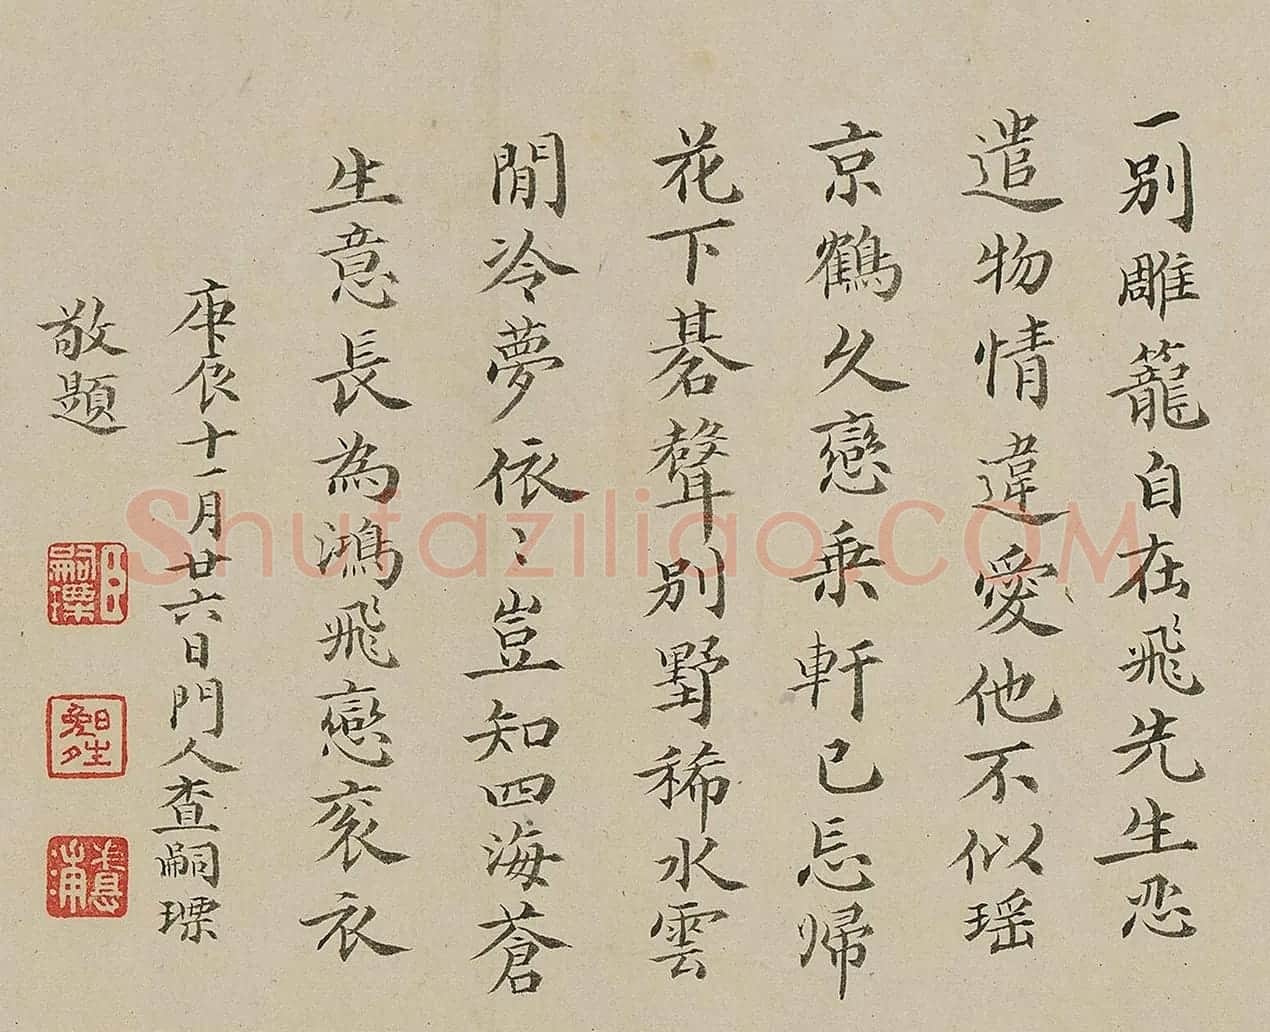 一別雕籠自在飛先生恐
遣物情違愛他不似瑶
京鶴久戀乗軒已忘帰
花下碁聲別墅稀水雲
閒冷夢依〻豈知四海蒼
生意長為鴻飛戀衮衣
庚辰十一月廿六日門人查嗣瑮
敬題
臣嗣瑮
查浦
Shufaziliao.COM